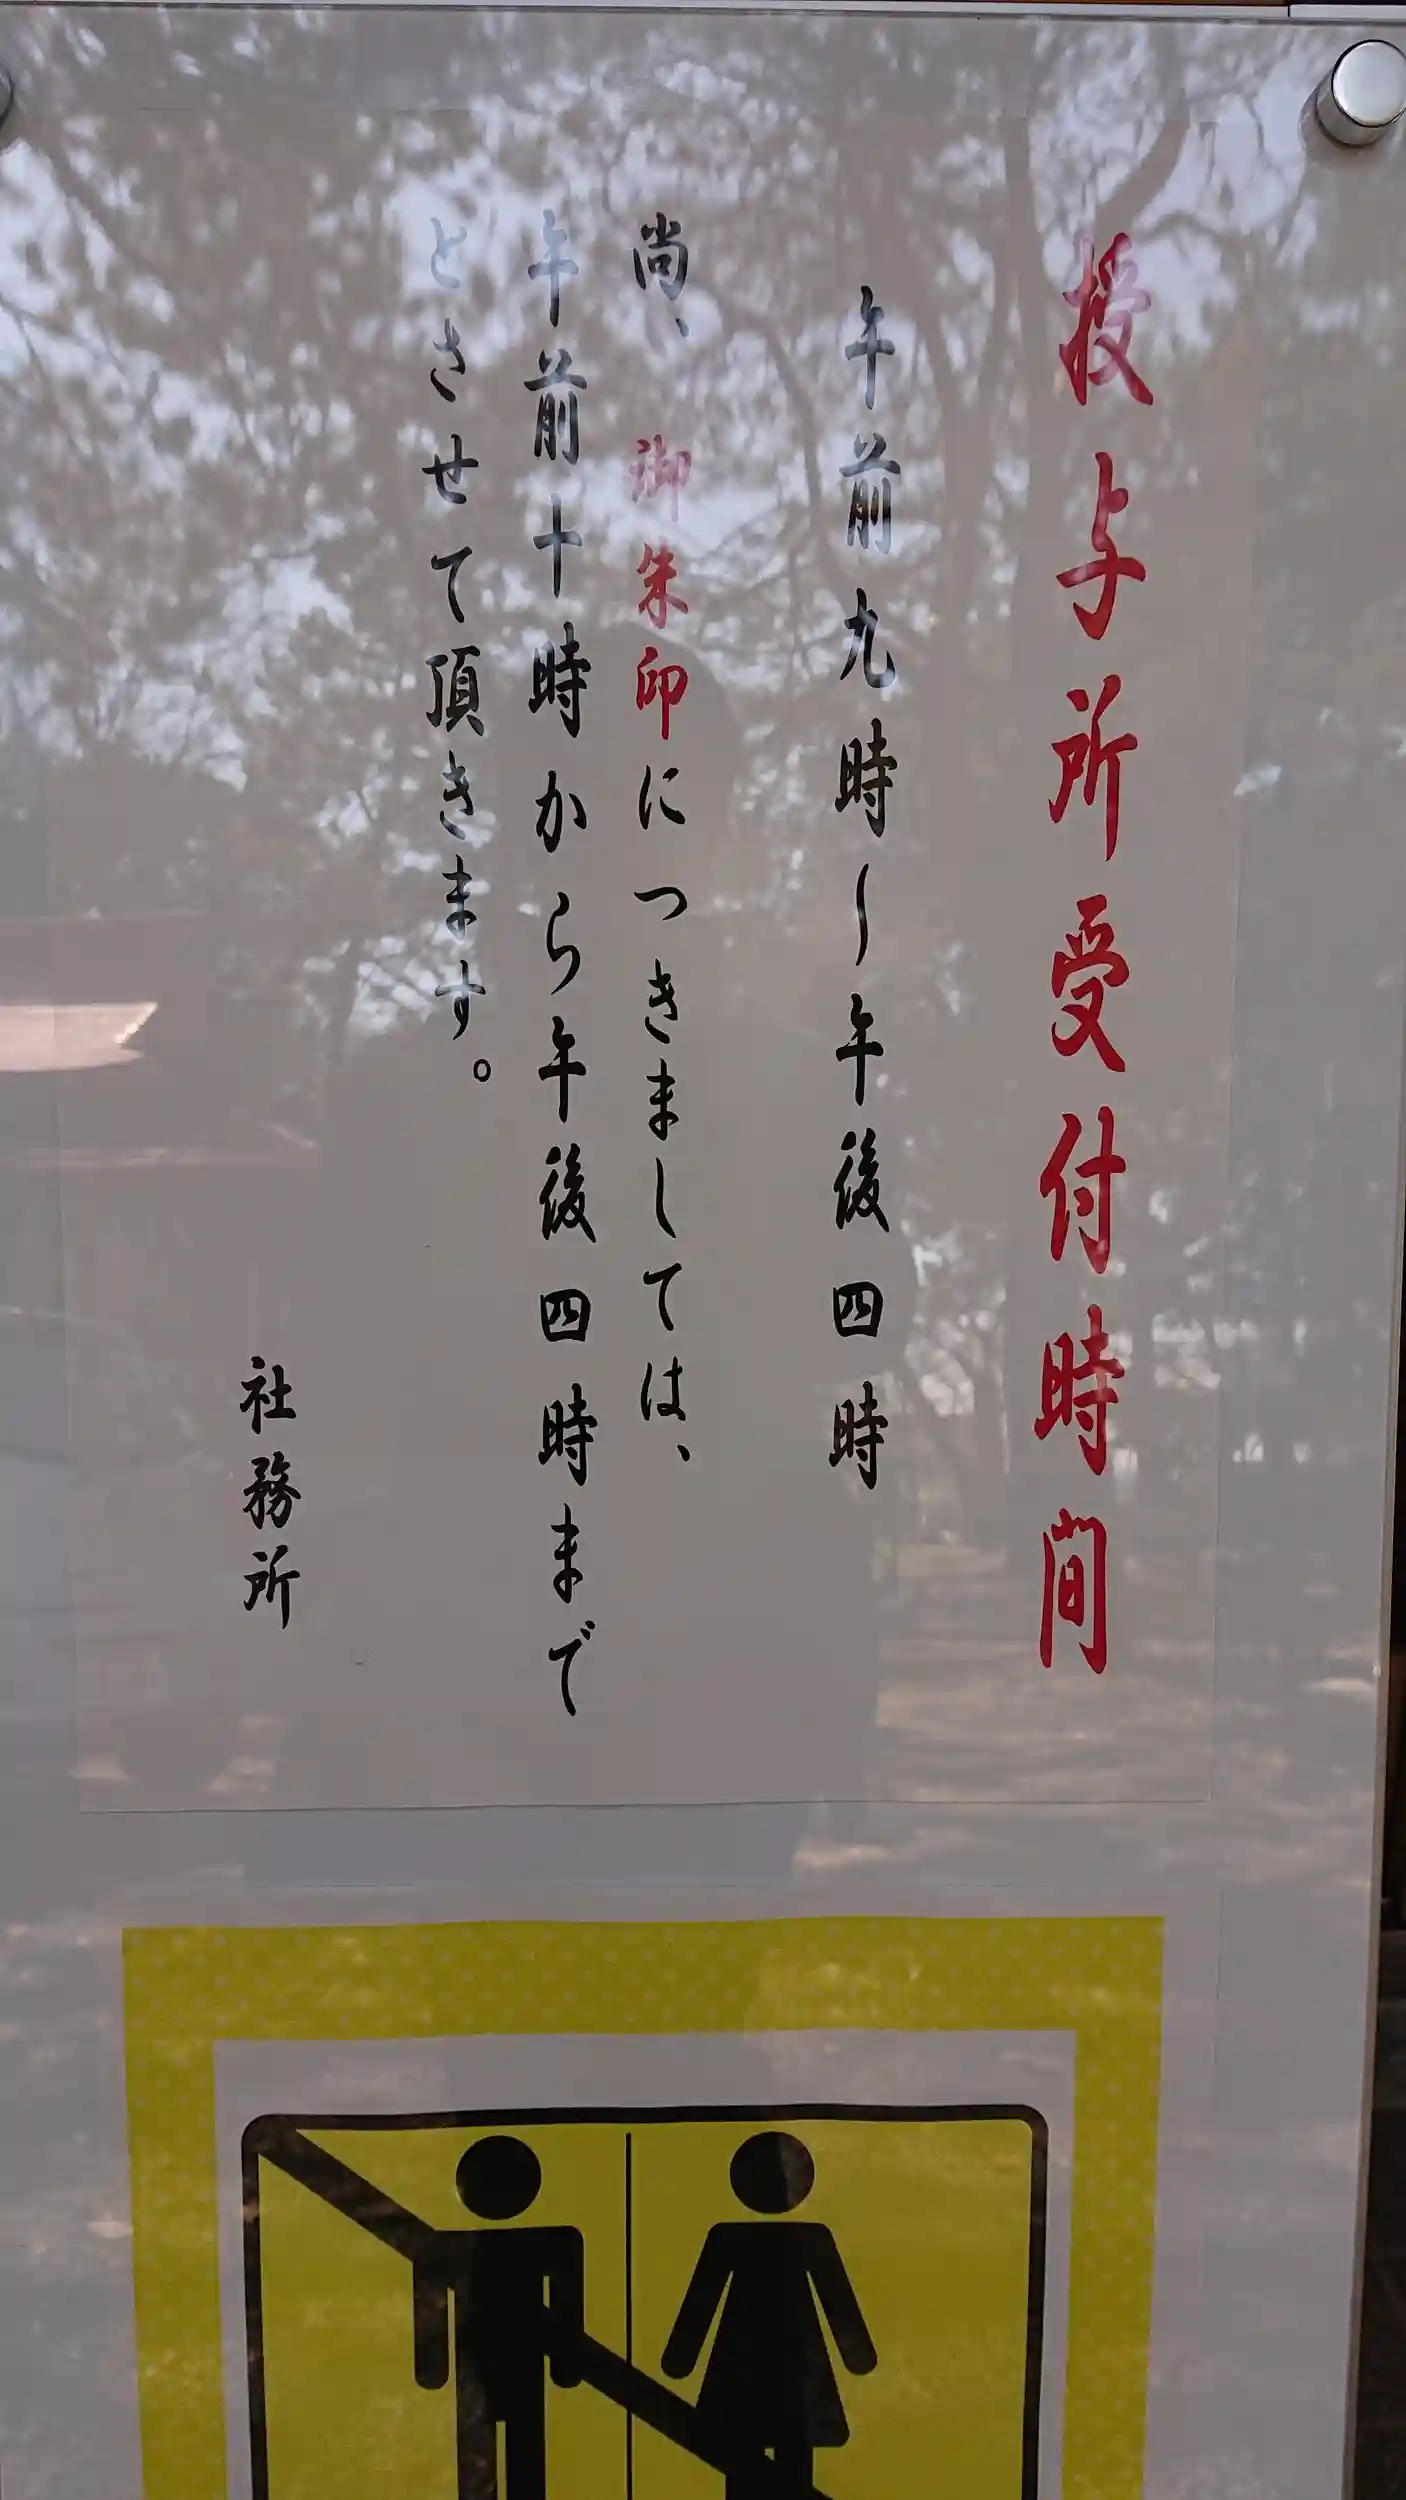 授与所受付時間
午前九時〜午後四時
尚、御朱印につきましては、
午前十時から午後四時まで
とさせて頂きます。
社務所